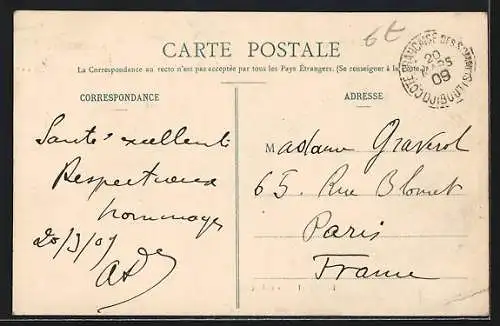 6t
CARTE POSTALE
La Correspondance au recto n'est pas acceptée par tous les Pays Étrangers. (Se renseigner à la Poste)
CORRESPONDANCE
ADRESSE
CÔTE FRANÇAISE DES SOMALIS DJIBOUTI
20
MARS
09
Santé excellente
Respectueux
hommages
20/3/09
Madame Graverol
65. Rue Blomet
Paris
France